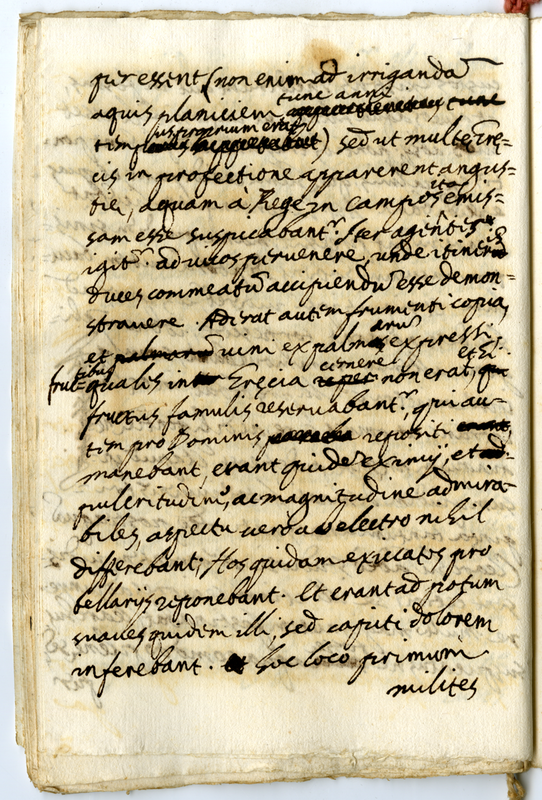 pur essent (non enim ad irriganda
aquis planiciem tunc anni
temp us proprium erat) sed ut multę Gręcis
cis in profectione apparerent angus=
tię, aquam à Rege in campos ita emis=
sam esse suspicabant.ʳ Iter agentes
igit.ʳ ad vicos pervenere, unde itineris
duces commeatū accipiendū esse demon=
stravere. Aderat autem frumenti copia,
et vini ex palmarū expressi
fruc=tibus qualis in Gręcia cernere non erat, et Ei
fructus famulis reservabant.ʳ, qui au=
tem pro Dominis repositi
manebant erant quidē eximij, et
pulcritudine, ac magnitudine admira=
biles, aspectu vero ab electro nihil
differebant; Hos quidam exiccatos pro
bellarijs reponebant. Et erant ad potum
suaves quidem illi, sed capiti dolorem
inferebant. hoc loco primum
milites